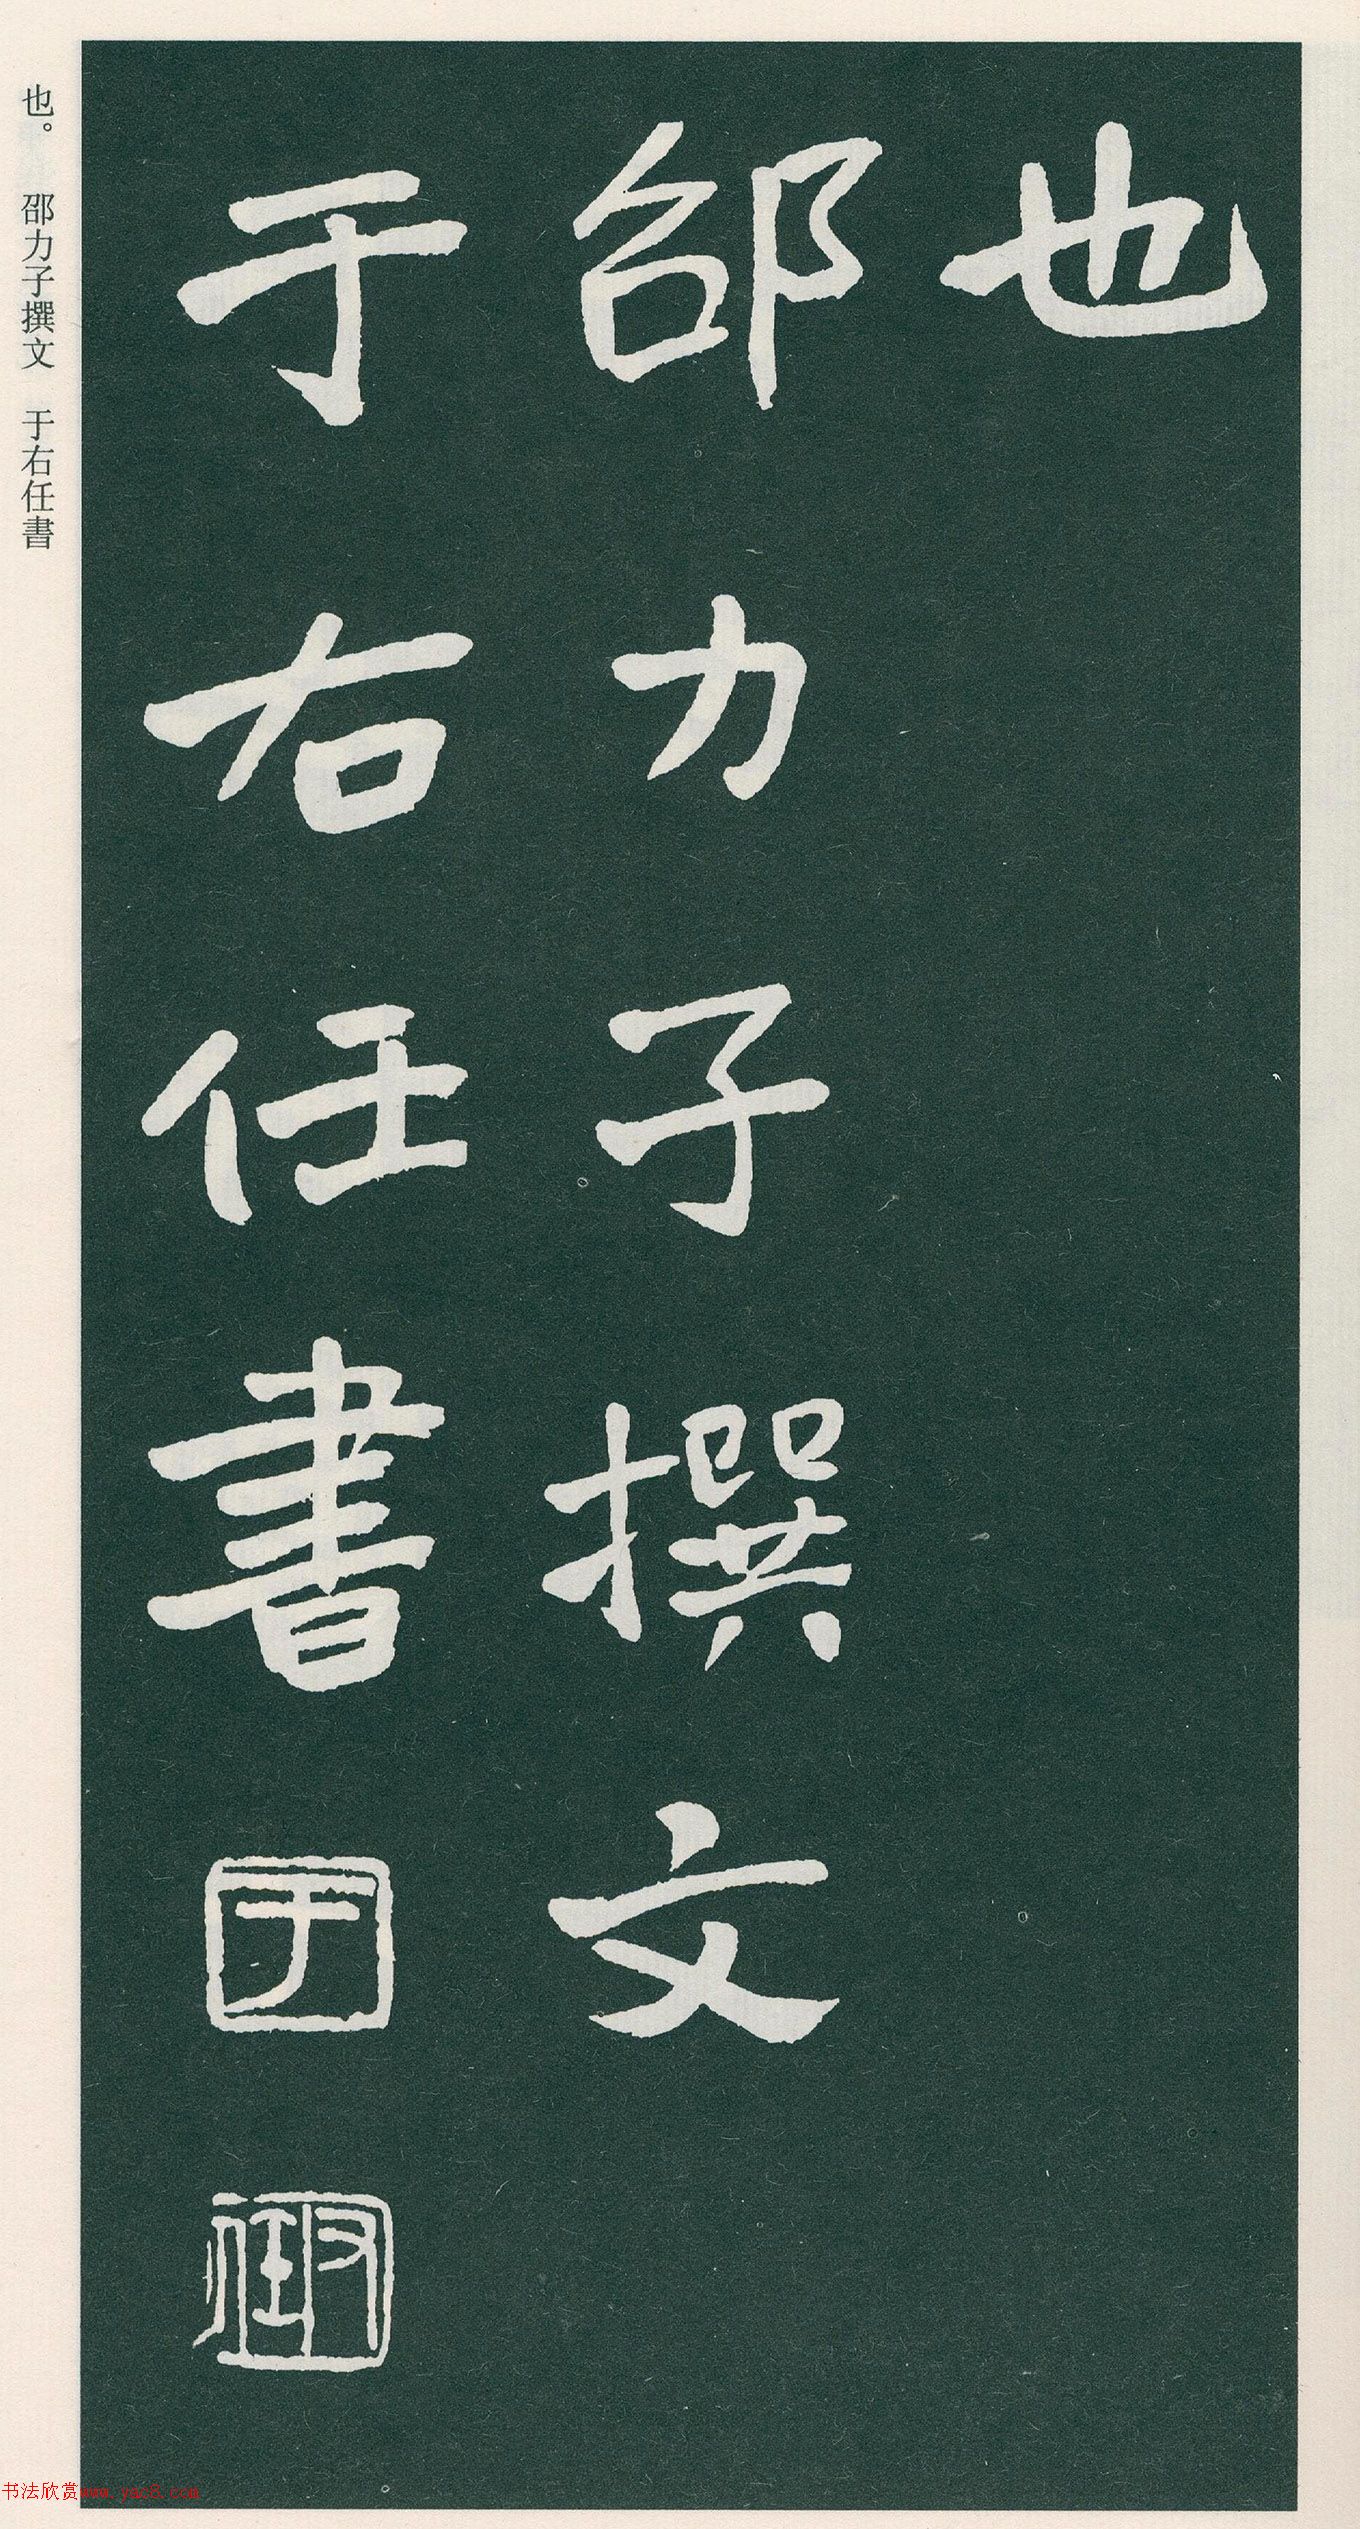 也
邵力子撰文
于右任書
于
右任
也。 邵力子撰文 于右任書
书法欣赏www.yac8.com